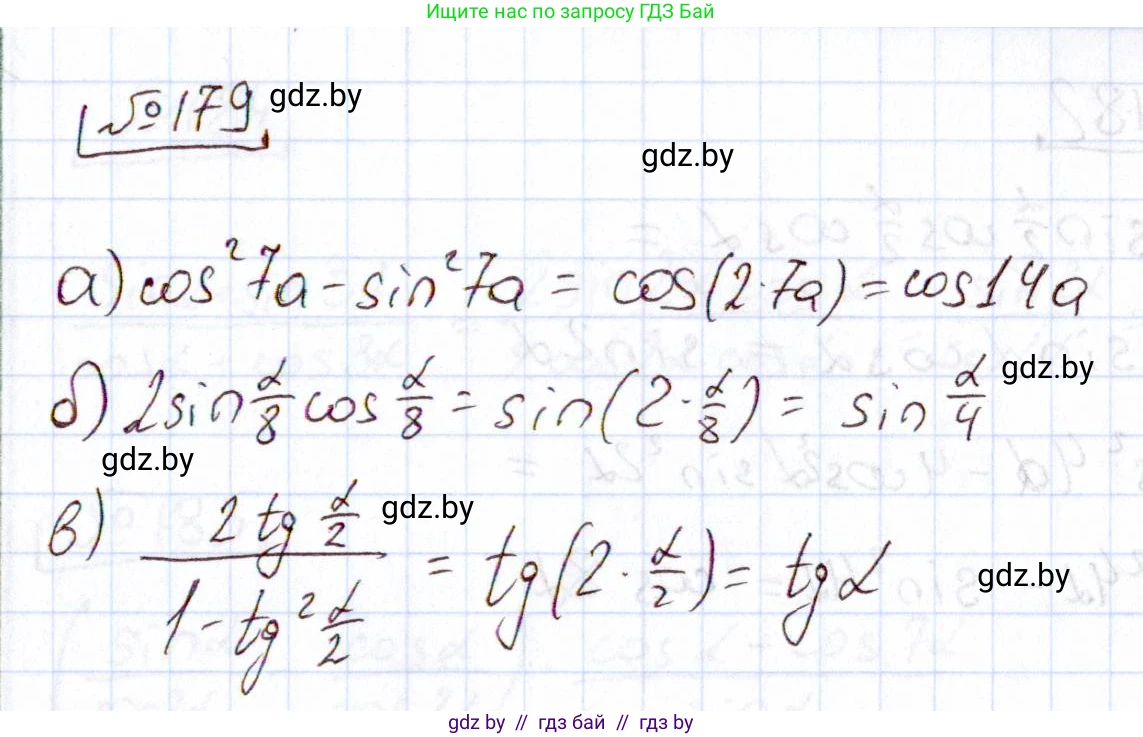 Ищите нас по запросу ГДЗ Бай
№179 gdz.by
gdz.by
а) cos²7a - sin²7a = cos(2·7a) = cos14a
gdz.by
б) 2sin α/8 cos α/8 = sin(2·α/8) = sin α/4
gdz.by
gdz.by
в) 2 tg α/2 / 1 - tg² α/2 = tg(2·α/2) = tg α
gdz.by
gdz by // гдз бай // гдз by